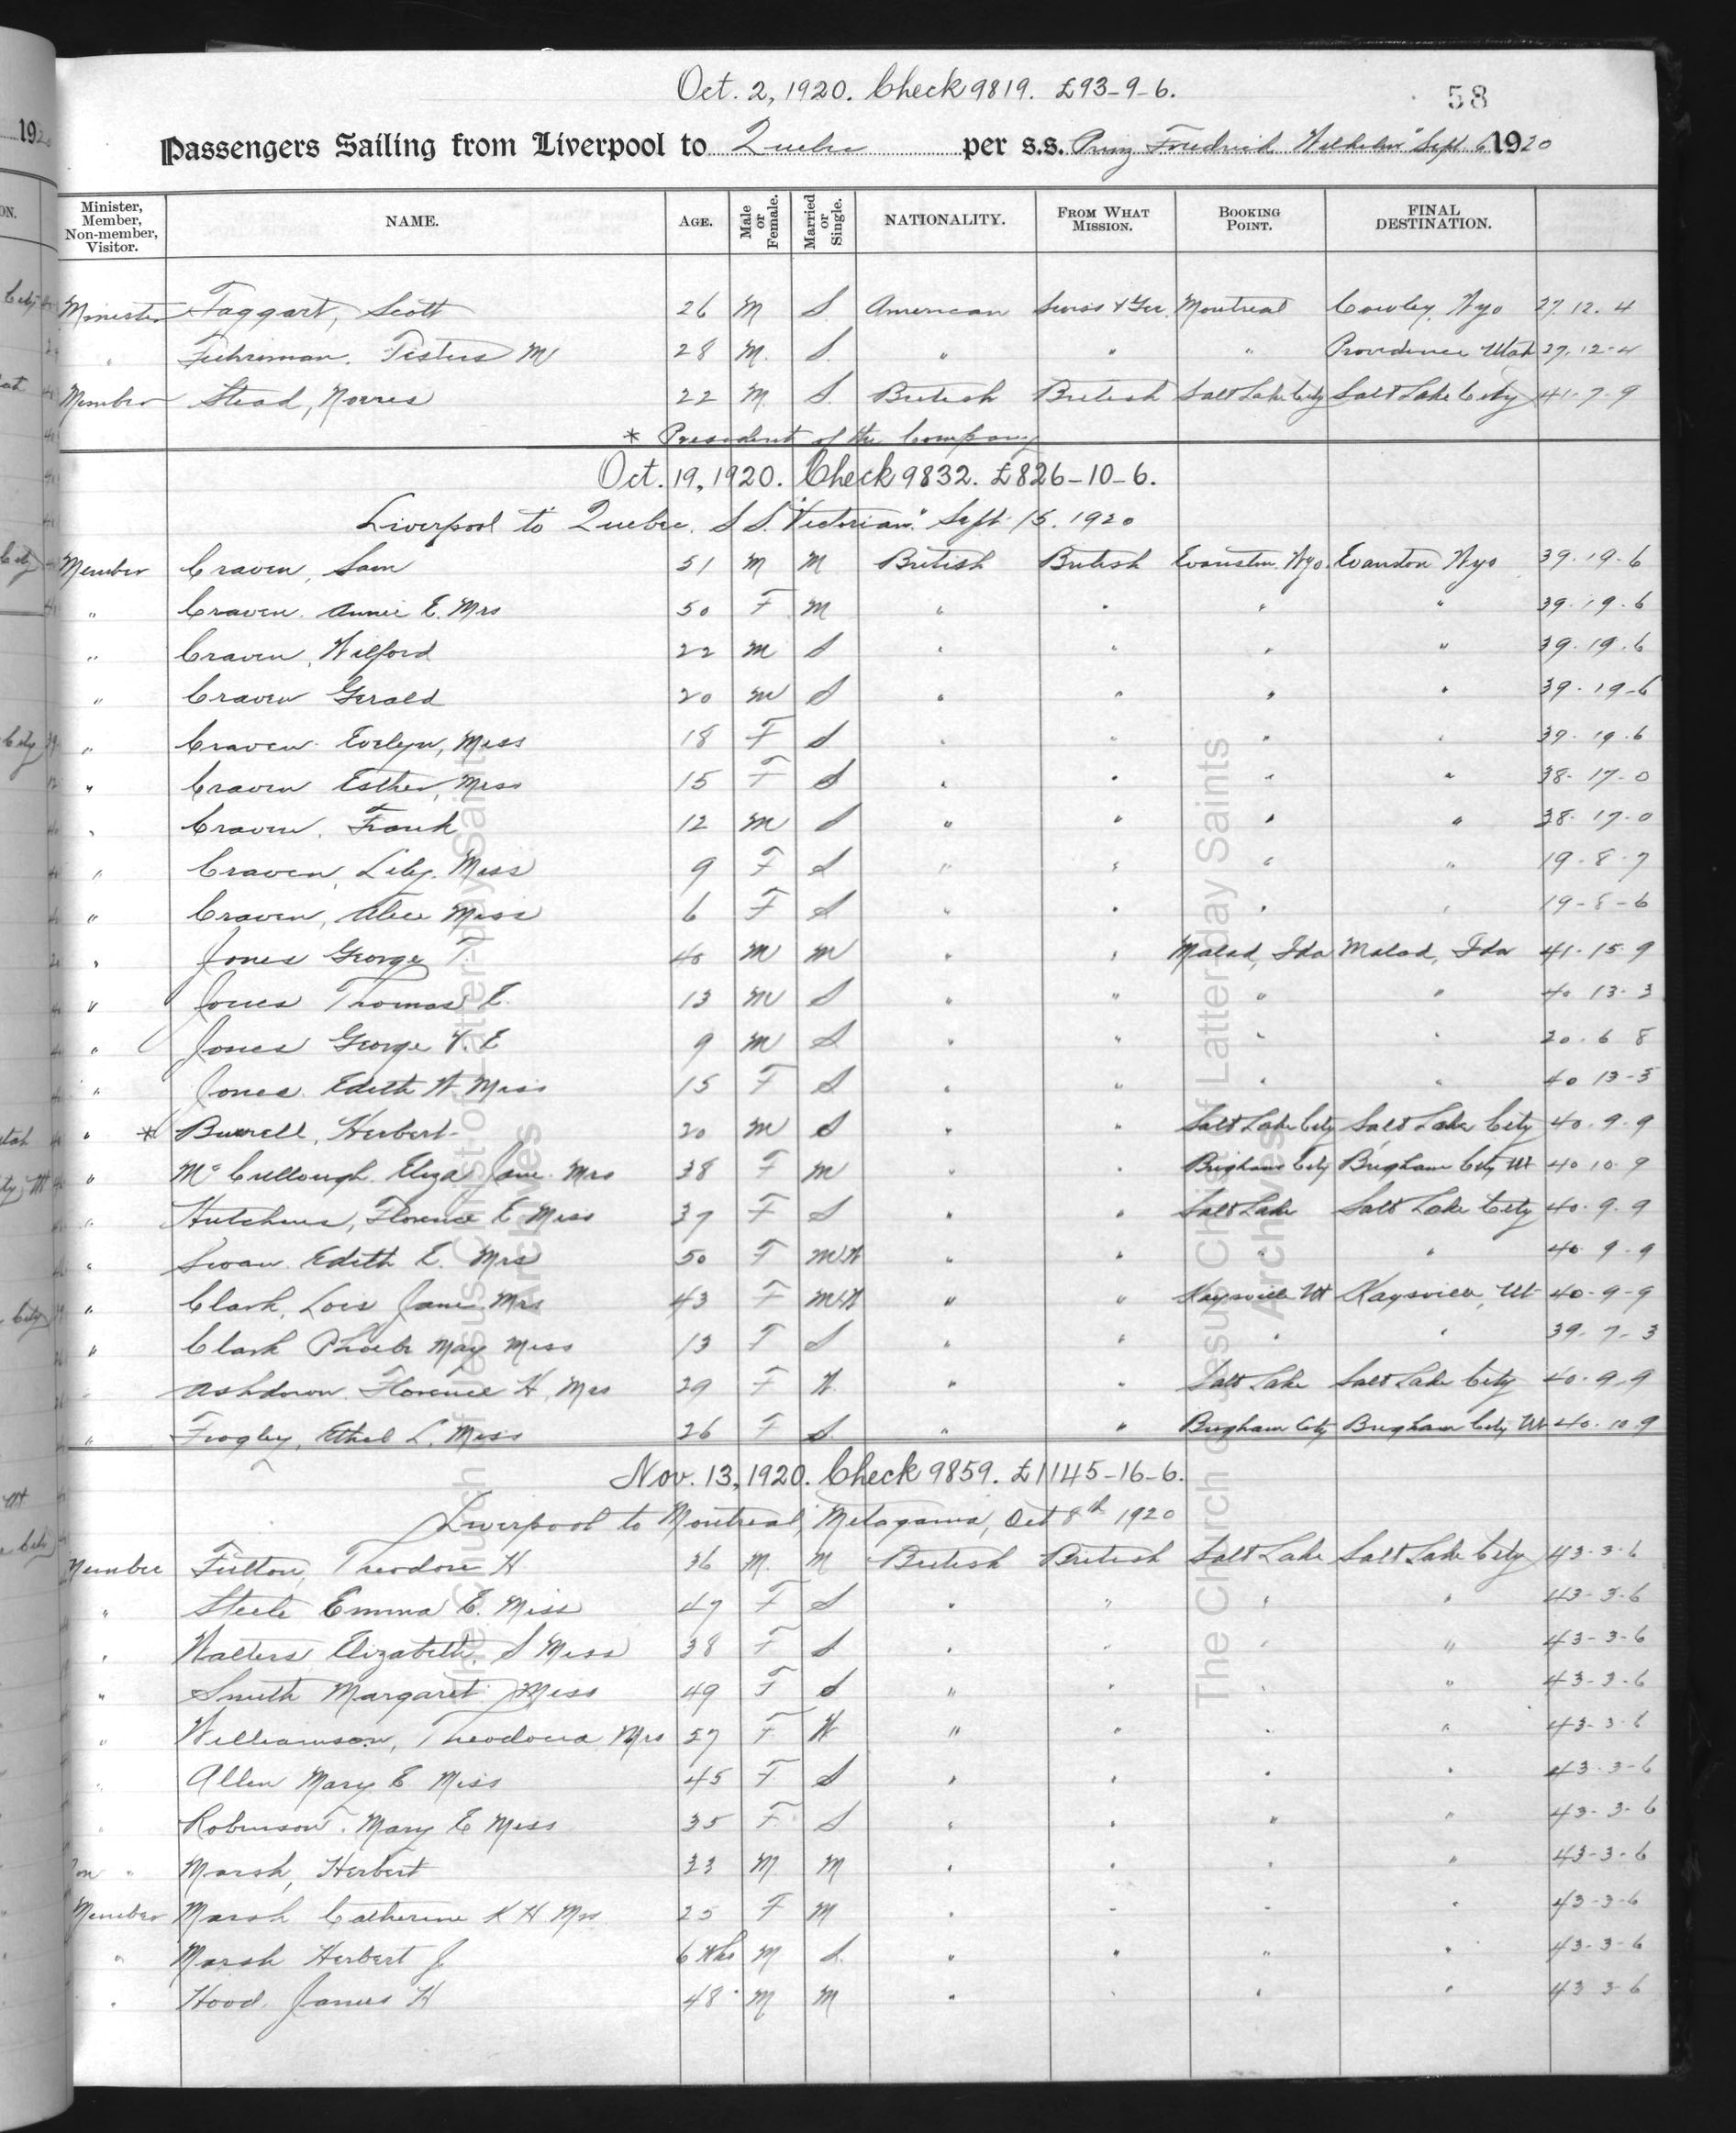 Oct. 2, 1920. Check 9819. £93-9-6.
58
Passengers Sailing from Liverpool to Quebec per s.s. Prinz Friedrich Wilhelm" Sept 6 1920
Minister, Member, Non-member, Visitor. NAME. AGE. Male or Female. Married or Single. NATIONALITY. FROM WHAT MISSION. BOOKING POINT. FINAL DESTINATION.
Minister Taggart, Scott 26 M S. American Swiss & Ger. Montreal Cowley, Wyo 27.12.4
" Fuhriman, M 28 M. S. " " " Providence Utah 27-12-4
Member Stead, Norris 22 M. S. British British Salt Lake City Salt Lake City 41-7-9
* President of the Company
Oct. 19, 1920. Check 9832. £826-10-6.
Liverpool to Quebec. S.S. "Victorian" Sept 15. 1920
Member Craven, Sam 51 M M British British Evanston, Wyo. Evanston Wyo 39.19.6
" Craven, Annie E. Mrs 50 F M " " " " 39.19.6
" Craven, Wilford 22 M S " " " " 39.19.6
" Craven Gerald 20 M S " " " " 39-19-6
" Craven Evelyn, Miss 18 F S " " " " 39.19.6
" Craven Esther, Miss 15 F S " " " " 38-17-0
" Craven, Frank 12 M S " " " " 38-17-0
" Craven, Lily, Miss 9 F S " " " " 19-8-7
" Craven, Alice Miss 6 F S " " " " 19-8-6
" Jones George T. 40 M M " " Malad, Ida Malad, Ida 41-15-9
" Jones Thomas E. 13 M S " " " " 40 13-3
" Jones George E 9 M S " " " " 20.6 8
" Jones Edith W. Miss 15 F S " " " " 40 13-3
" * Burrell, Herbert 20 M S " " Salt Lake City Salt Lake City 40.9.9
" McCullough, Eliza Jane Mrs 38 F M " " Brigham City Brigham City Ut 40 10.9
" Hutchins, Florence E Miss 37 F S " " Salt Lake Salt Lake City 40.9.9
" Swan Edith E. Mrs 50 F M.W " " " " 40 9-9
" Clark, Lois Jane Mrs 43 F M.W " " Kaysville Ut Kaysville, Ut 40-9-9
" Clark Phoebe May Miss 13 F S " " " " 39.7-3
" Ashdown, Florence H, Mrs 29 F W. " " Salt Lake Salt Lake City 40.9.9
" Frogley, Ethel L. Miss 26 F S " " Brigham City Brigham City Ut 40.10.9
Nov. 13, 1920. Check 9859. £1145-16-6.
Liverpool to Montreal, Metagama, Oct 8th 1920
Member Fulton, Theodore H 36 M. M British British Salt Lake Salt Lake City 43-3-6
" Steele Emma E. Miss 47 F S " " " " 43-3-6
" Walters, Elizabeth S Miss 38 F S " " " " 43-3-6
" Smith Margaret Miss 49 F S " " " " 43-3-6
" Williamson, Theodocia Mrs 57 F W " " " " 43-3-6
" Allen Mary E Miss 45 F S " " " " 43-3-6
" Robinson, Mary E Miss 35 F S " " " " 43-3-6
Non " Marsh, Herbert 23 M M " " " " 43-3-6
Member Marsh Catherine K H Mrs 25 F M " " " " 43-3-6
" Marsh Herbert J 6 Wks M S. " " " " 43-3-6
" Hood, James H 48 M M " " " " 43 3-6
The Church of Jesus Christ of Latter-day Saints
Archives
The Church of Jesus Christ of Latter-day Saints
Archives